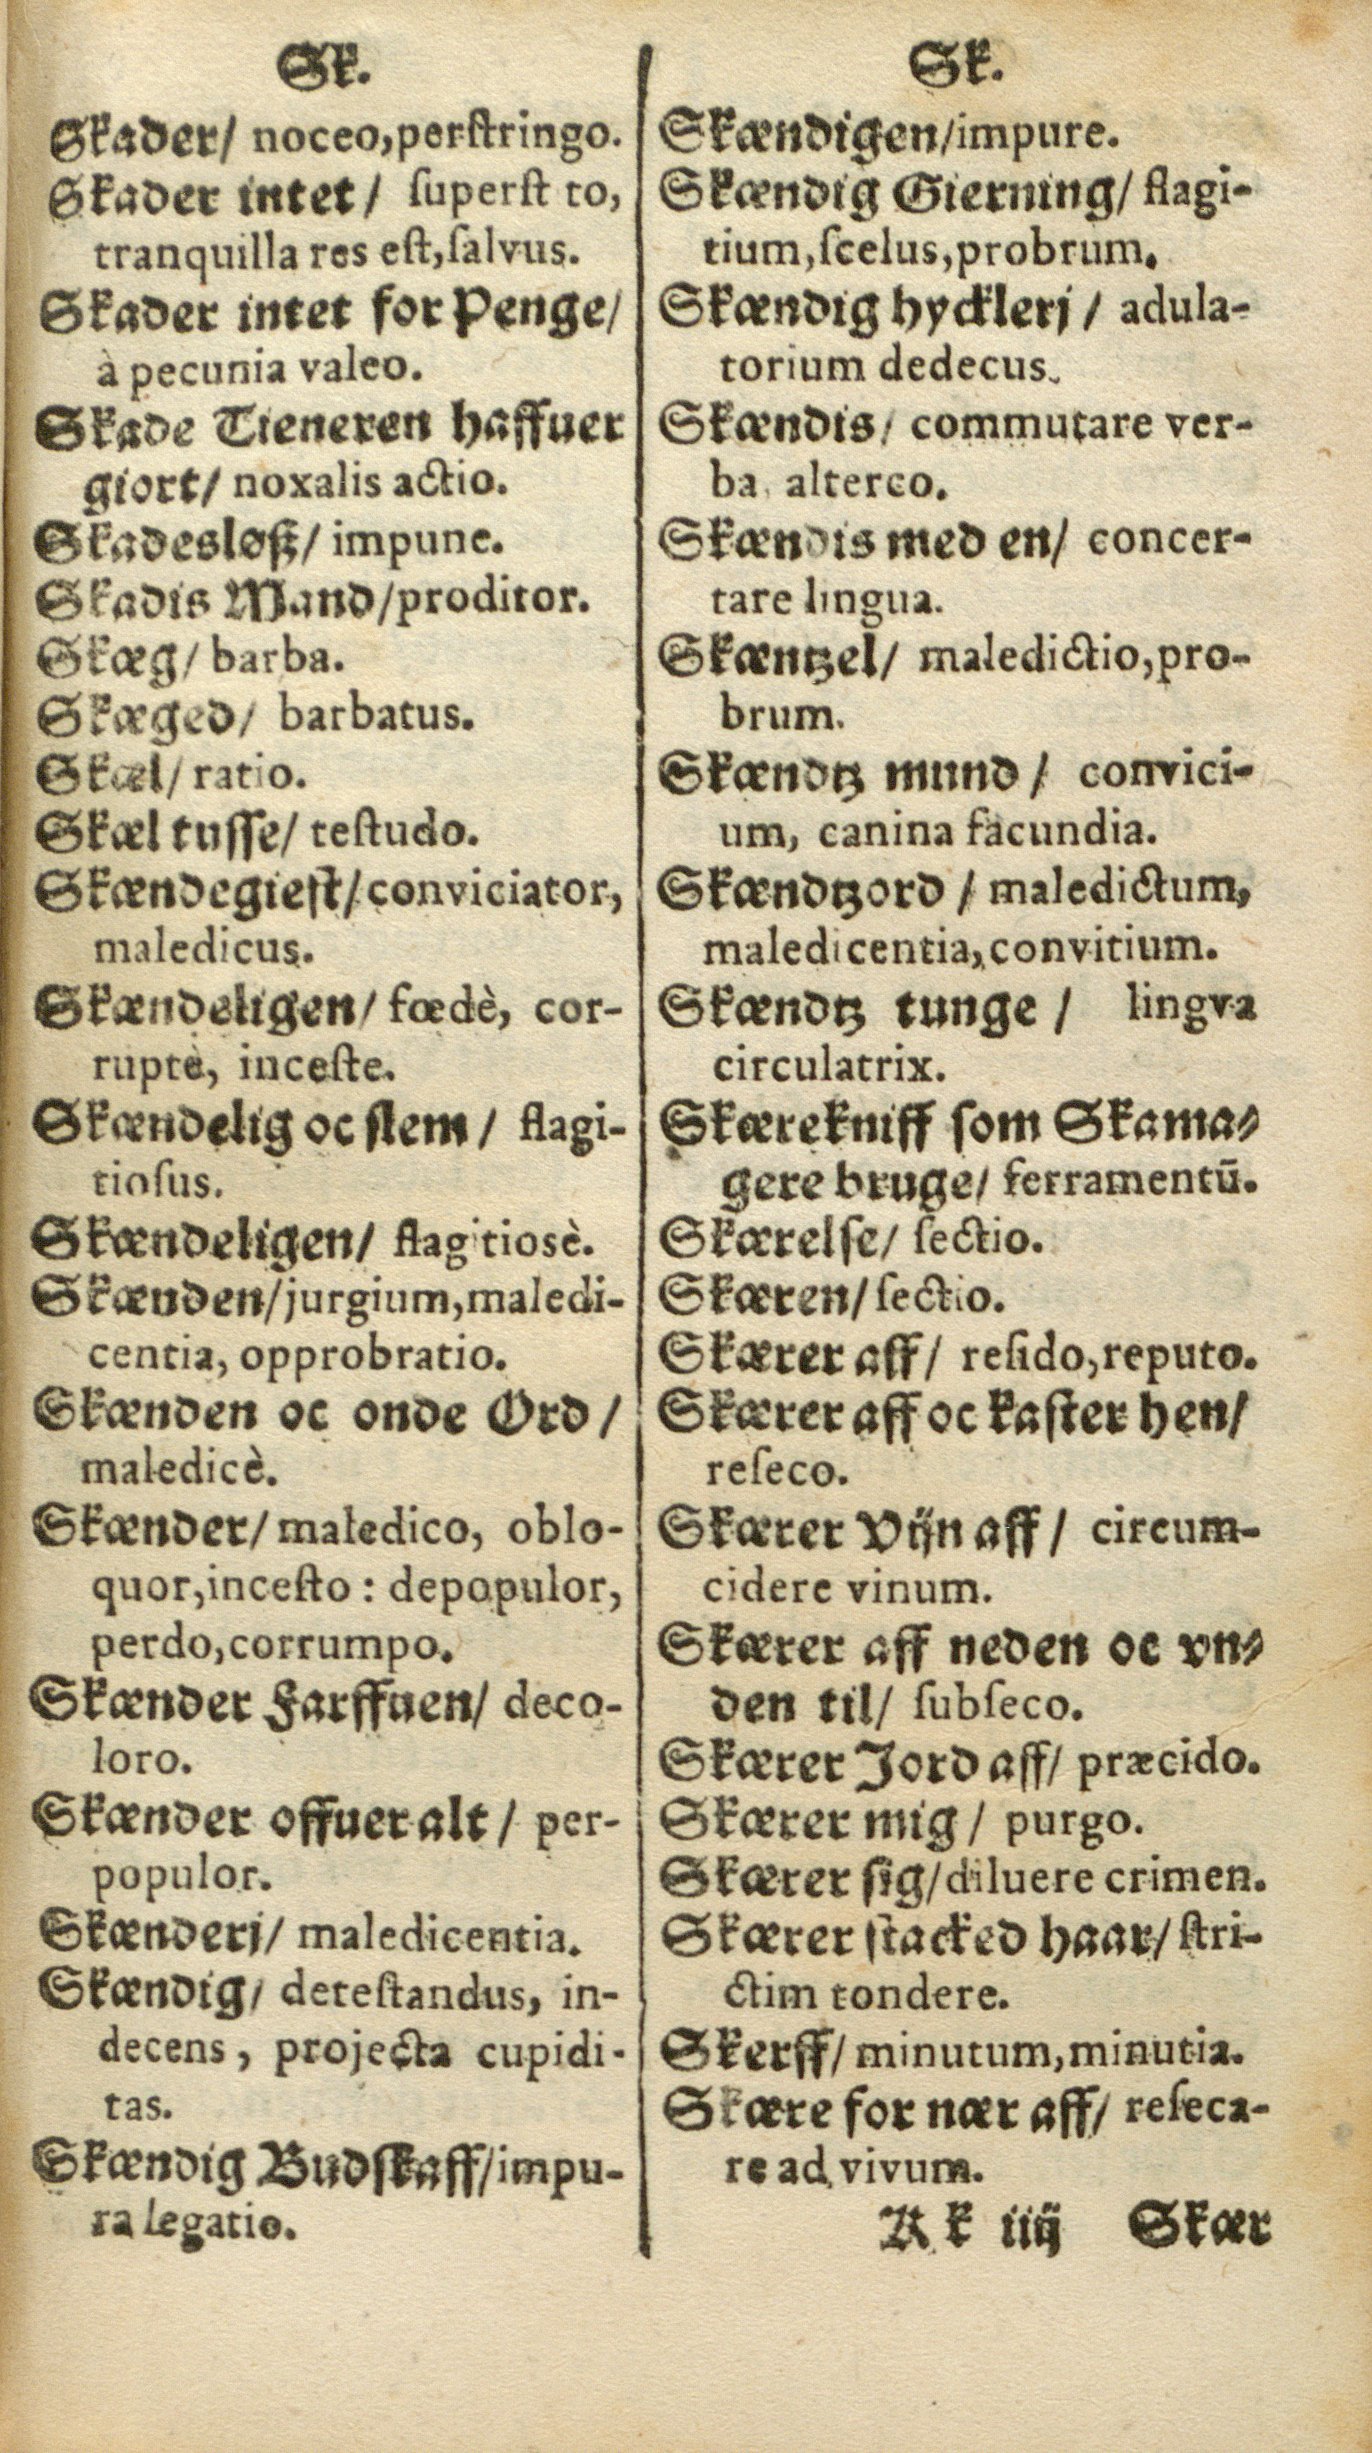 Sk.
Skader/ noceo,perstringo.
Skader intet/ ſuperſt to,
tranquilla res eſt,ſalvus.
Skader intet for Penge/
à pecunia valeo.
Skade Tieneren haffuer
giort/ noxalis actio.
Skadesløß/ impune.
Skadis Mand/proditor.
Skæg/ barba.
Skæged/ barbatus.
Skæl/ ratio.
Skæl tuſſe/ teſtudo.
Skændegieſt/conviciator,
maledicus.
Skændeligen/ fœdè, cor-
ruptè, inceſte.
Skændelig oc ſlem/ flagi-
tioſus.
Skændeligen/ flagitiosè.
Skænden/jurgium,maledi-
centia, opprobratio.
Skænden oc onde Ord/
maledicè.
Skænder/ maledico, oblo-
quor,inceſto: depopulor,
perdo,corrumpo.
Skænder Farffuen/ deco-
loro.
Skænder offuer alt/ per-
populor.
Skænderj/ maledicentia.
Skændig/ deteſtandus, in-
decens, projecta cupidi-
tas.
Skændig Budſkaff/impu-
ra legatio.
Sk.
Skændigen/impure.
Skændig Gierning/ flagi-
tium,ſcelus,probrum.
Skændig hycklerj/ adula-
torium dedecus.
Skændis/ commutare ver-
ba, alterco.
Skændis med en/ concer-
tare lingua.
Skæntzel/ maledictio,pro-
brum.
Skændtz mund/ convici-
um, canina facundia.
Skændtzord/ maledictum,
maledicentia,convitium.
Skændtz tunge/ lingva
circulatrix.
Skærekniff ſom Skama-
gere bruge/ ferramentū.
Skærelſe/ ſectio.
Skæren/ ſectio.
Skærer aff/ reſido,reputo.
Skærer aff oc kaſter hen/
reſeco.
Skærer Vijn aff/ circum-
cidere vinum.
Skærer aff neden oc vn-
den til/ ſubſeco.
Skærer Jord aff/ præcido.
Skærer mig/ purgo.
Skærer ſig/diluere crimen.
Skærer ſtacked haar/ ſtri-
ctim tondere.
Skerff/ minutum,minutia.
Skære for nær aff/ reſeca-
re ad vivum.
K k iiij Skær